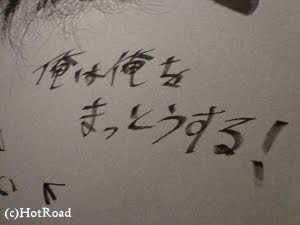 俺は俺を
まっとうする!
(c)HotRoad